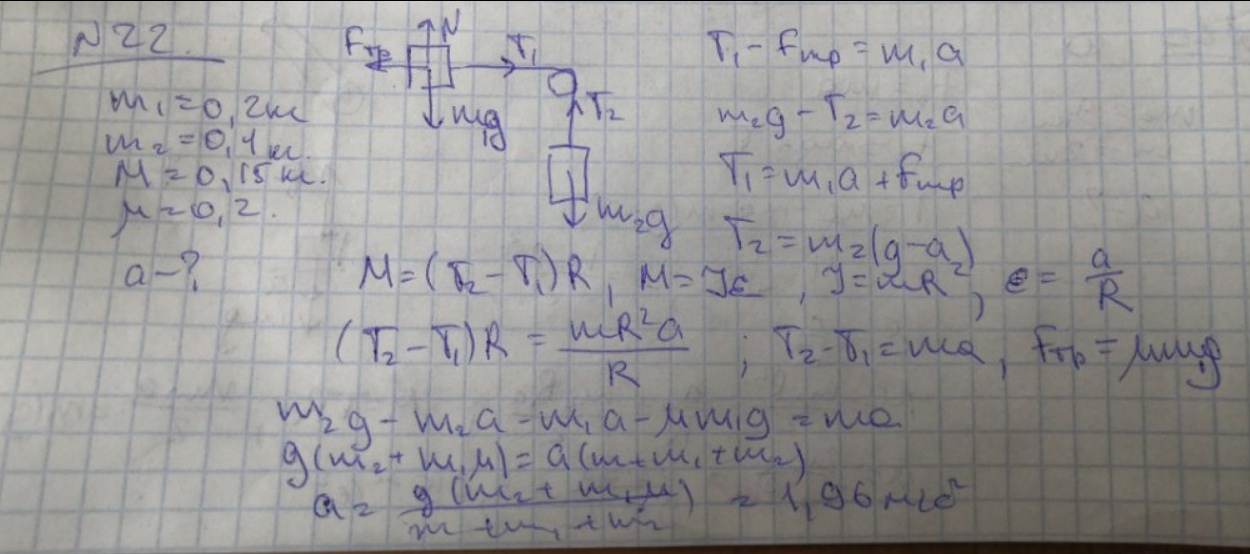 N22.
Fтр N T₁
m₁=0,2кг
m₂=0,4кг.
M=0,15кг.
μ=0,2.
a-?
m₁g
T₂
m₂g
T₁ - Fтр = m₁a
m₂g - T₂ = m₂a
T₁ = m₁a + Fтр
T₂ = m₂(g-a₂)
M=(T₂-T₁)R, M=Jε, J=mR², ε= a/R
(T₂-T₁)R = mR²a/R ; T₂-T₁=ma, Fтр=μm₁g
m₂g - m₂a - m₁a - μm₁g = ma
g(m₂+m₁μ) = a(m+m₁+m₂)
a= g(m₂+m₁μ)/m+m₁+m₂ = 1,96 м/с²